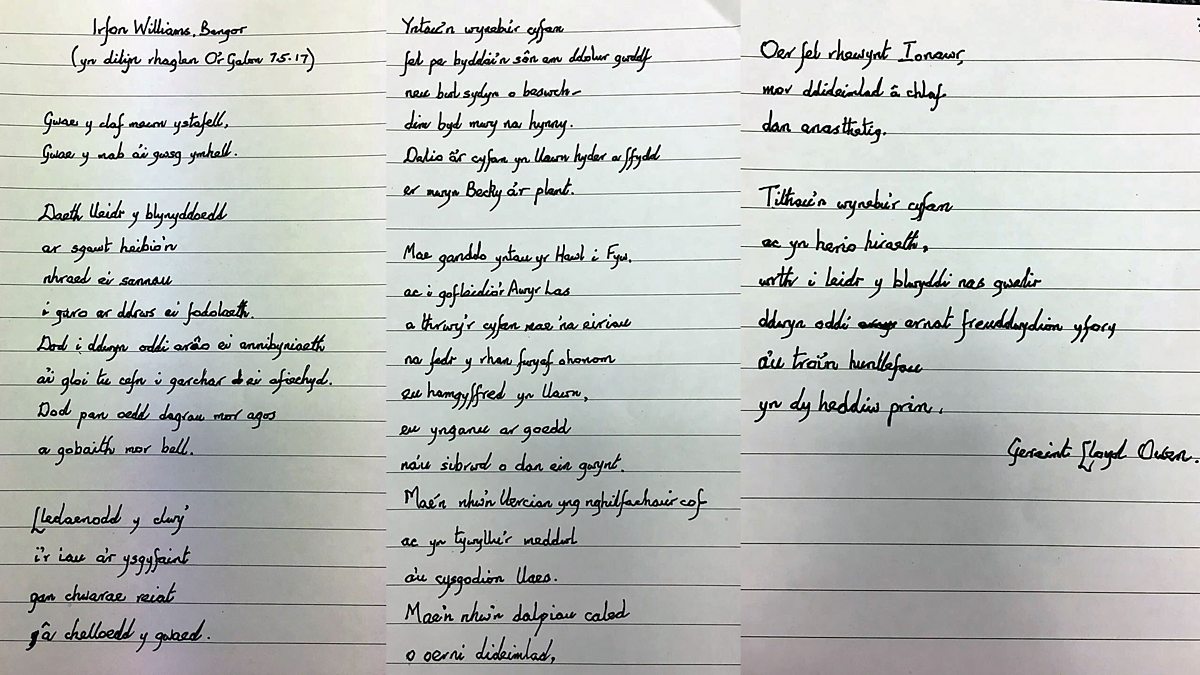 Irfon Williams, Bangor
(yn dilyn rhaglen O'r Galon 7.5.17)
Gwae y claf mewn ystafell,
Gwae y mab â'i gwsg ymhell.
Daeth lleidr y blynyddoedd
ar sgawt heibio'n
nhraed ei sannau
i guro ar ddrws ei fodolaeth.
Dod i ddwyn oddi arno ei annibyniaeth
a'i gloi tu cefn i garchar ei afiechyd.
Dod pan oedd dagrau mor agos
a gobaith mor bell.
Lledaenodd y clwy'
i'r iau a'r ysgyfaint
gan chwarae reiat
gâ chelloedd y gwaed.
Yntau'n wynebu'r cyfan
fel pe byddai'n sôn am ddolur gwddf
neu bwl sydyn o beswch -
dim byd mwy na hynny.
Dalio â'r cyfan yn llawn hyder a ffydd
er mwyn Becky a'r plant.
Mae ganddo yntau yr Hawl i Fyw,
ac i gofleidio'r Awyr Las
a thrwy'r cyfan mae 'na eiriau
na fedr y rhan fwyaf ohonom
eu hamgyffred yn llawn,
eu ynganu ar goedd
na'u sibrwd o dan ein gwynt.
Mae'n nhw'n llercian yng nghilfachau'r cof
ac yn tywyllu'r meddwl
a'u cysgodion llaes.
Mae'n nhw'n dalpiau caled
o oerni dideimlad,
Oer fel rhewynt Ionawr,
mor ddideimlad â chlaf
dan anasthetig.
Tithau'n wynebu'r cyfan
ac yn herio hiraeth,
wrth i leidr y blwyddi nas gwelir
ddwyn oddi arnat freuddwydion yfory
a'u troi'n hunllefau
yn dy heddiw prin.
Gereint Lloyd Owen.